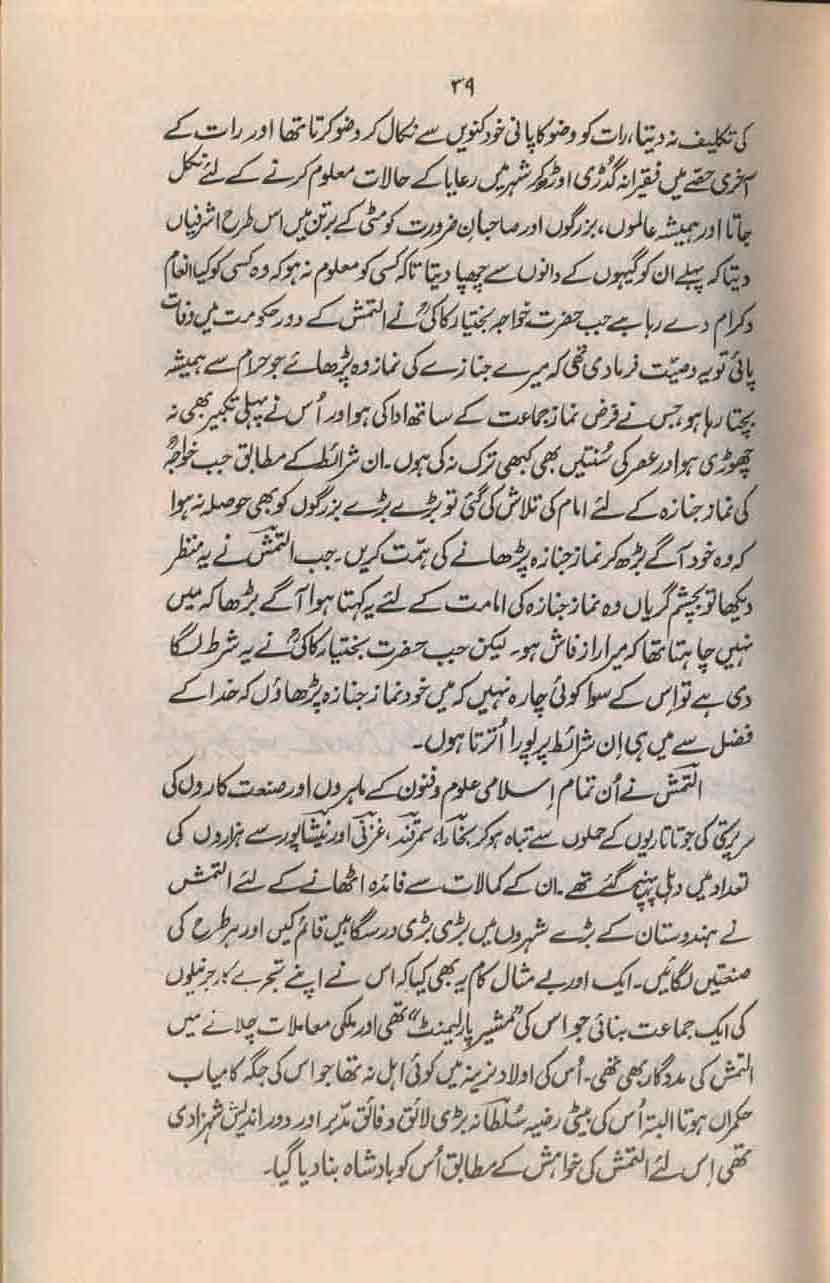 ۳۹
کی تکلیف نہ دیتا، رات کو وضو کا پانی خود کنویں سے نکال کر وضو کرتا تھا اور رات کے
آخری حصے میں فقیرانہ گدڑی اوڑھ کر شہر میں رعایا کے حالات معلوم کرنے کے لئے نکل
جاتا اور ہمیشہ عالموں، بزرگوں اور صاحبانِ ضرورت کو مٹی کے برتن میں اس طرح اشرفیاں
دیتا کہ پہلے ان کو گیہوں کے دانوں سے چھپا دیتا تاکہ کسی کو معلوم نہ ہو کہ وہ کسی کو کیا انعام
و کرام دے رہا ہے جب حضرت خواجہ بختیار کاکیؒ نے التمش کے دور حکومت میں وفات
پائی تو یہ وصیت فرما دی تھی کہ میرے جنازے کی نماز وہ پڑھائے جو حرام سے ہمیشہ
بچتا رہا ہو، جس نے فرض نماز جماعت کے ساتھ ادا کی ہو اور اُس نے پہلی تکبیر بھی نہ
چھوڑی ہو اور عصر کی سُنتیں بھی کبھی ترک نہ کی ہوں۔ ان شرائط کے مطابق جب خواجہؒ
کی نماز جنازہ کے لئے امام کی تلاش کی گئی تو بڑے بڑے بزرگوں کو بھی حوصلہ نہ ہوا
کہ وہ خود آگے بڑھ کر نماز جنازہ پڑھانے کی ہمّت کریں۔ جب التمش نے یہ منظر
دیکھا تو بچشم گریاں وہ نماز جنازہ کی امامت کے لئے یہ کہتا ہوا آگے بڑھا کہ میں
نہیں چاہتا تھا کہ میرا راز فاش ہو۔ لیکن جب حضرت بختیار کاکیؒ نے یہ شرط لگا
دی ہے تو اِس کے سوا کوئی چارہ نہیں کہ میں خود نماز جنازہ پڑھاؤں کہ خدا کے
فضل سے میں ہی اِن شرائط پر پورا اُترتا ہوں۔
التمش نے اُن تمام اِسلامی علوم و فنون کے ماہروں اور صنعت کاروں کی
سرپرستی کی جو تاتاریوں کے حملوں سے تباہ ہو کر بخارا، سمرقند، غزنی اور نیشاپور سے ہزاروں کی
تعداد میں دہلی پہنچ گئے تھے۔ ان کے کمالات سے فائدہ اٹھانے کے لئے التمش
نے ہندوستان کے بڑے شہروں میں بڑی بڑی درسگاہیں قائم کیں اور ہر طرح کی
صنعتیں لگائیں۔ ایک اور بے مثال کام یہ بھی کیا کہ اس نے اپنے تجربے کار جرنیلوں
کی ایک جماعت بنائی جو اس کی ”مشیر پارلیمنٹ“ تھی اور ملکی معاملات چلانے میں
التمش کی مددگار بھی تھی۔ اُس کی اولاد نرینہ میں کوئی اہل نہ تھا جو اس کی جگہ کامیاب
حکمراں ہوتا البتہ اُس کی بیٹی رضیہ سُلطانہ بڑی لائق و فائق مدّبر اور دور اندیش شہزادی
تھی اِس لئے التمش کی خواہش کے مطابق اُس کو بادشاہ بنا دیا گیا۔